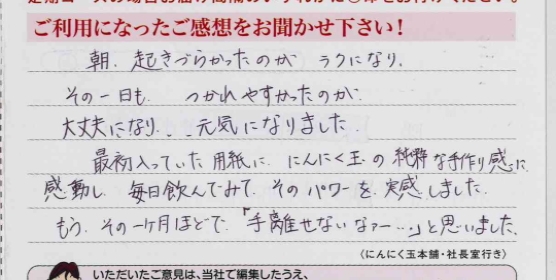 ご利用になったご感想をお聞かせ下さい！
朝、起きづらかったのが ラクになり、
その一日も、つかれやすかったのが、
大丈夫になり...元気になりました。
最初入っていた用紙に、にんにく玉の純粋な手作り感に
感動し、毎日飲んでみて、そのパワーを実感しました。
もう、その一ヶ月ほどで、「手離せないなァー…」と思いました。
(にんにく玉本舗・社長室行き)
いただいたご意見は、当社で編集したうえ、